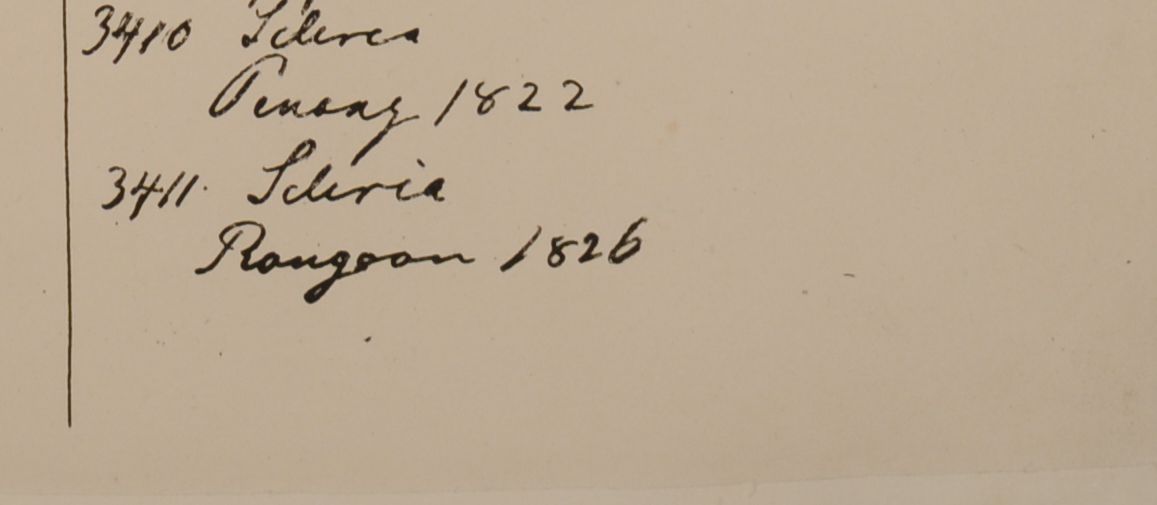 3410 Scleria
Penang 1822
3411. Scleria
Rangoon 1826